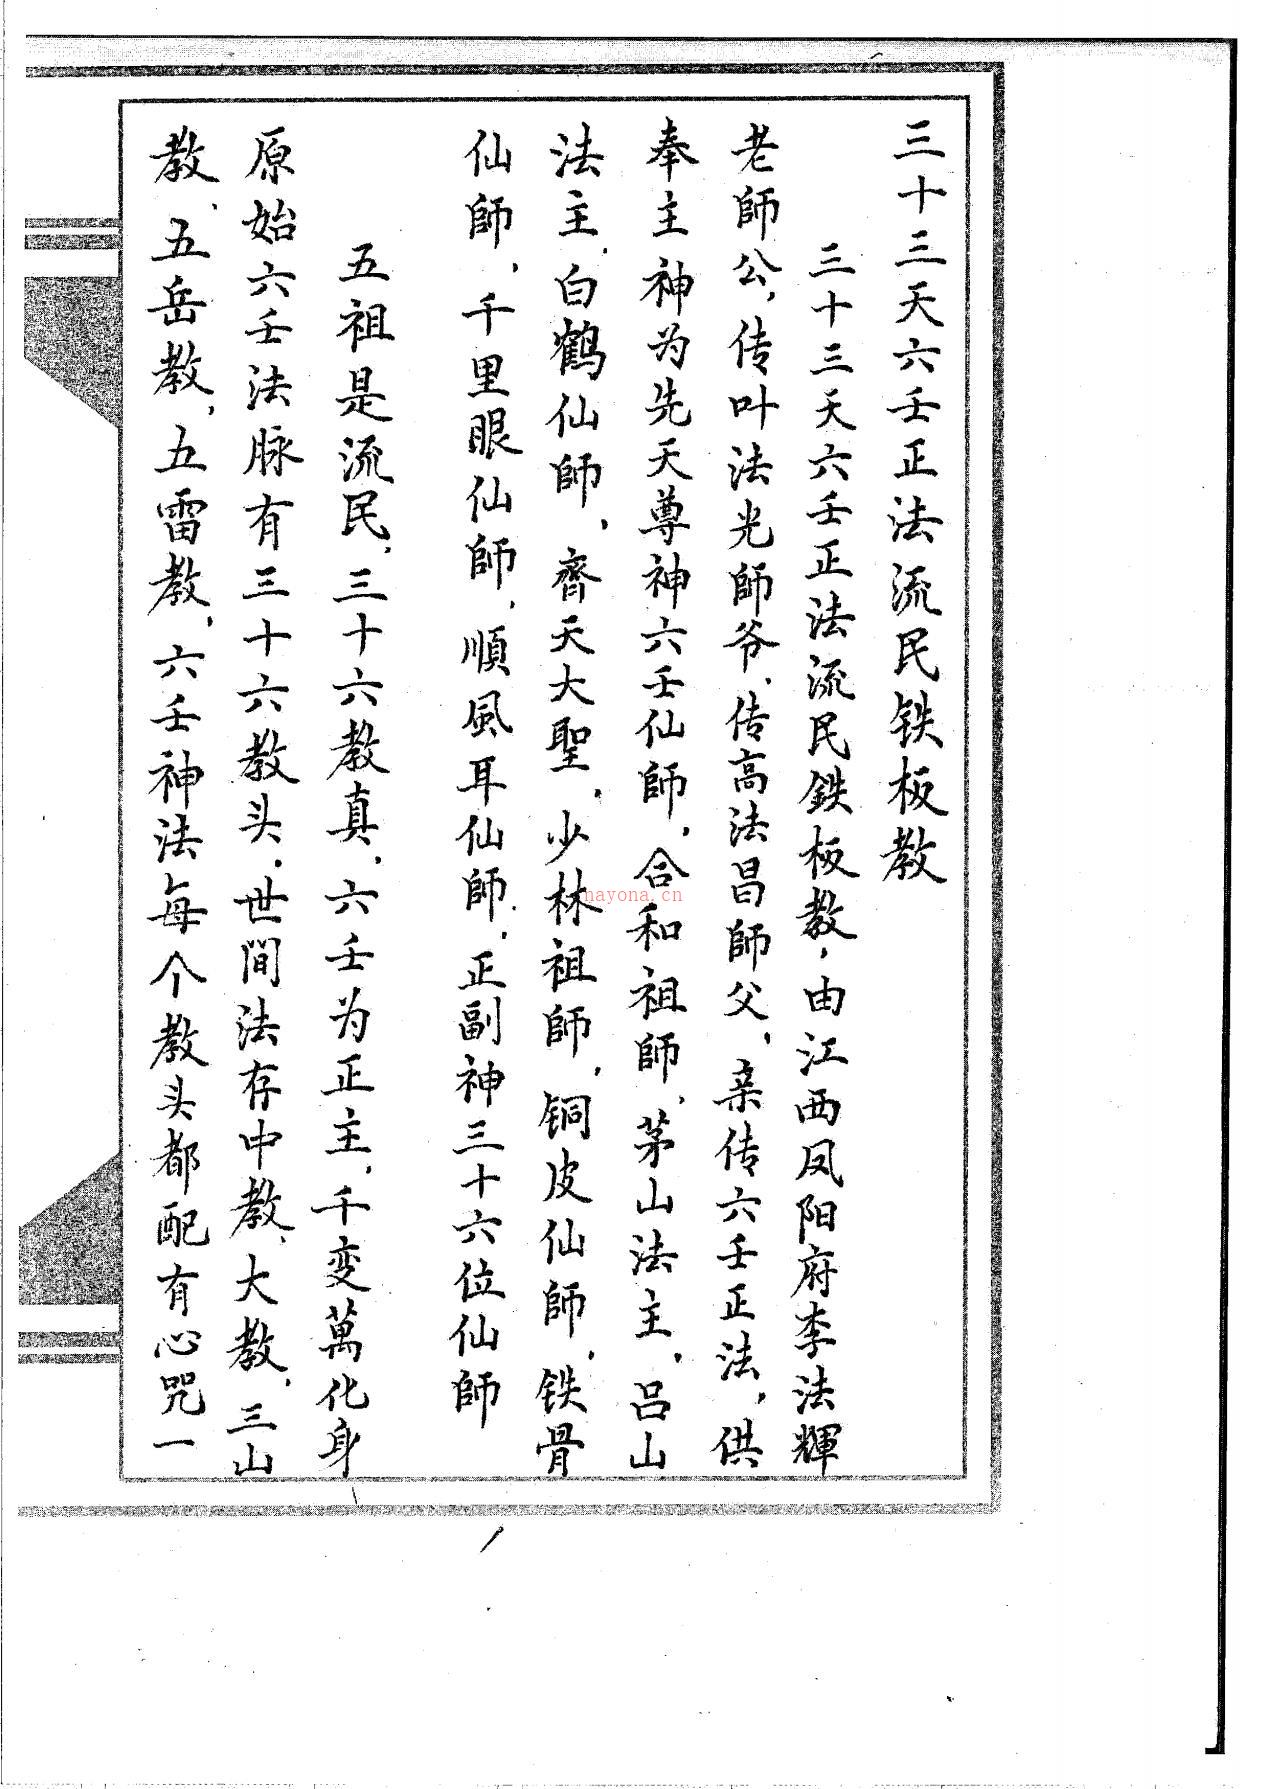 三十三天六壬正法流民铁板教
三十三天六壬正法流民鉄板教，由江西凤阳府李法輝
老師公，传叶法光師爷、传高法昌師父，亲传六壬正法，供
奉主神为先天尊神六壬仙師，合和祖師、茅山法主，吕山
法主，白鹤仙師，齊天大聖，少林祖師，铜皮仙師，铁骨
仙師，千里眼仙師，順風耳仙師，正副神三十六位仙師
五祖是流民，三十六教真，六壬为正主，千变萬化身
原始六壬法脉有三十六教头，世間法存中教、大教，三山
教，五岳教，五雷教，六壬神法每个教头都配有心咒一
nayona.cn